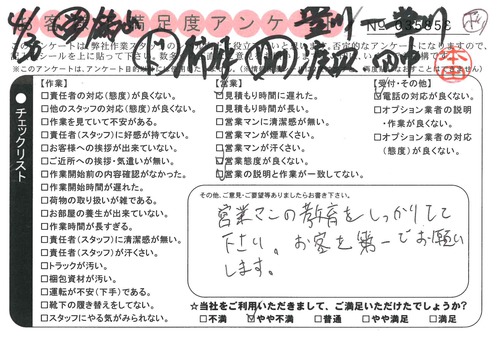 お客様満足度アンケート
№ 03585
このアンケートは弊社作業スタッフの
※このアンケートは、アンケート目的
チェックリスト
【作業】
□責任者の対応(態度)が良くない。
□他のスタッフの対応(態度)が良くない。
□作業を見ていて不安がある。
□責任者(スタッフ)に好感が持てない。
□お客様への挨拶が出来ていない。
□ご近所への挨拶・気遣いが無い。
□作業開始前の内容確認がなかった。
□作業開始時間が遅れた。
□荷物の取り扱いが雑である。
□お部屋の養生が出来ていない。
□作業時間が長すぎる。
□責任者(スタッフ)に清潔感が無い。
□責任者(スタッフ)が汗くさい。
□トラックが汚い。
□梱包資材が汚い。
□運転が不安(下手)である。
□靴下の履き替えをしてない。
□スタッフにやる気がみられない。
【営業】
☑見積もり時間に遅れた。
□見積もり時間が長い。
□営業マンに清潔感が無い。
□営業マンが煙草くさい。
□営業マンが汗くさい。
☑営業態度が良くない。
☑営業の説明と作業が一致してない。
【受付・その他】
☑電話の対応が良くない。
□オプション業者の説明・作業が良くない。
□オプション業者の対応(態度)が良くない。
その他、ご意見・ご要望等ありましたらお書き下さい。
営業マンの教育をしっかりして
下さい。お客を第一でお願い
します。
☆当社をご利用いただきまして、ご満足いただけたでしょうか?
□不満 ☑やや不満 □普通 □やや満足 □満足